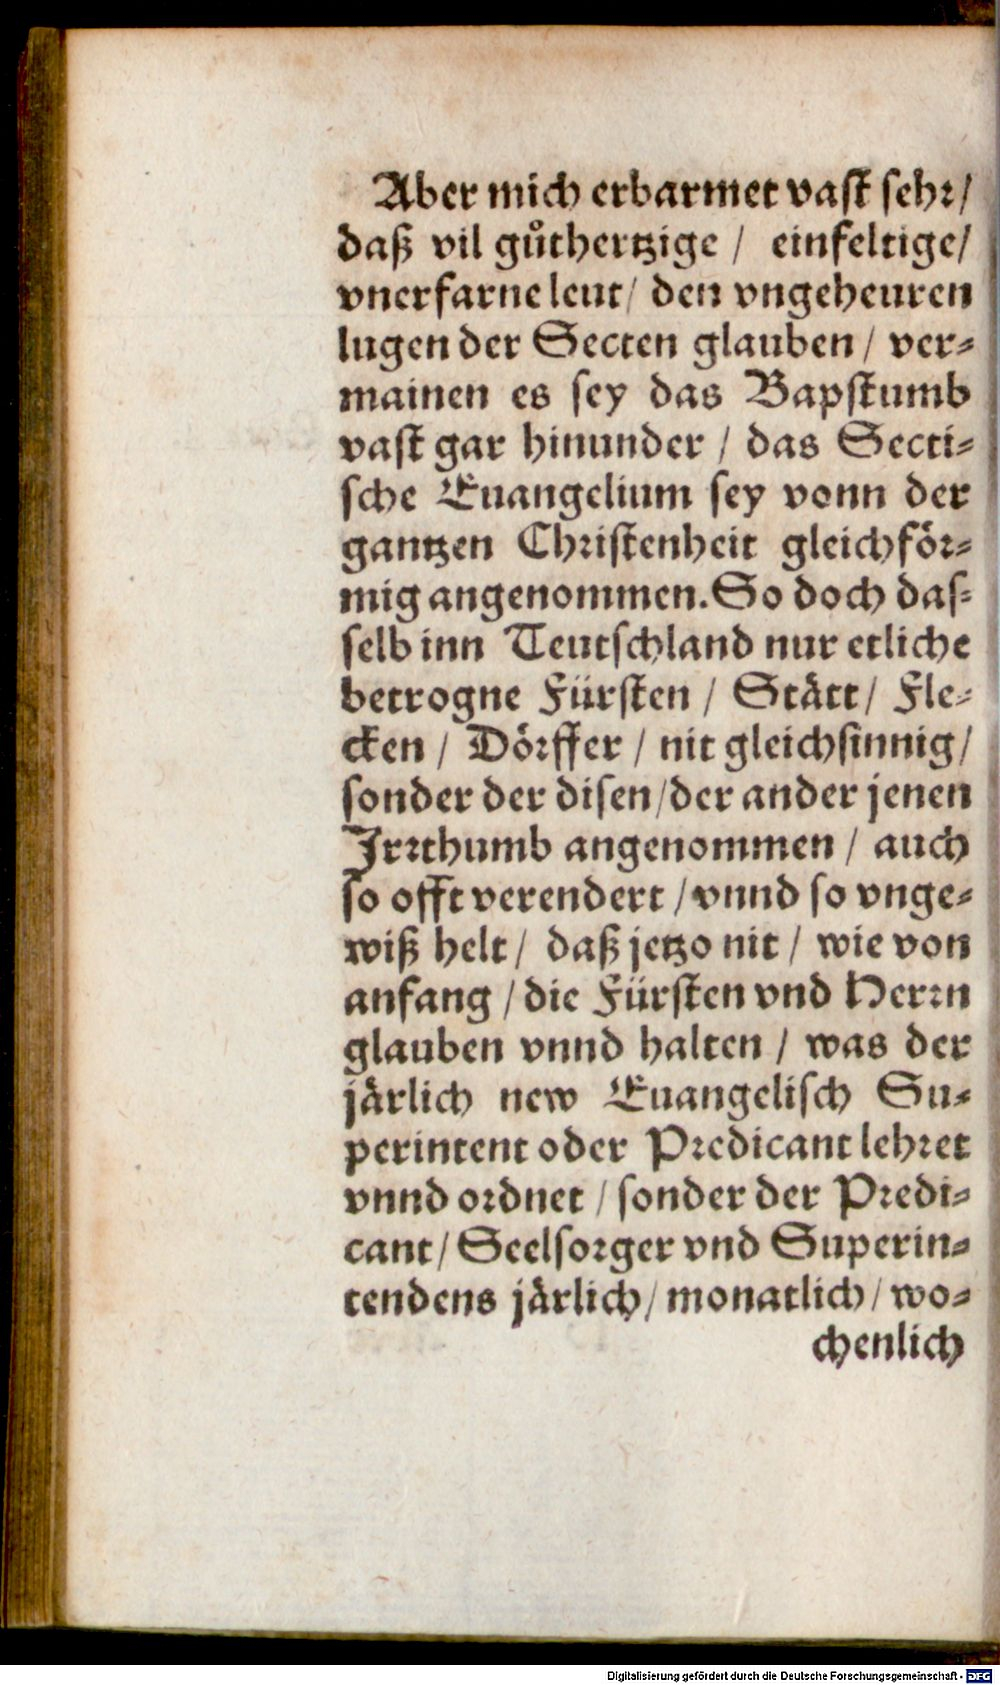 Aber mich erbarmet vast sehr/
daß vil gůthertzige / einfeltige/
vnerfarne leut/ den vngeheuren
lugen der Secten glauben / ver-
mainen es sey das Bapstumb
vast gar hinunder / das Secti-
sche Euangelium sey vonn der
gantzen Christenheit gleichför-
mig angenommen. So doch das-
selb inn Teutschland nur etliche
betrogne Fürsten / Stätt/ Fle-
cken / Dörffer / nit gleichsinnig/
sonder der disen/der ander jenen
Irrthumb angenommen / auch
so offt verendert / vnnd so vnge-
wiß helt / daß jetzo nit / wie von
anfang / die Fürsten vnd Herrn
glauben vnnd halten / was der
järlich new Euangelisch Su-
perintent oder Predicant lehret
vnnd ordnet / sonder der Predi-
cant/ Seelsorger vnd Superin-
tendens järlich/ monatlich/ wo-
chenlich
Digitalisierung gefördert durch die Deutsche Forschungsgemeinschaft - DFG